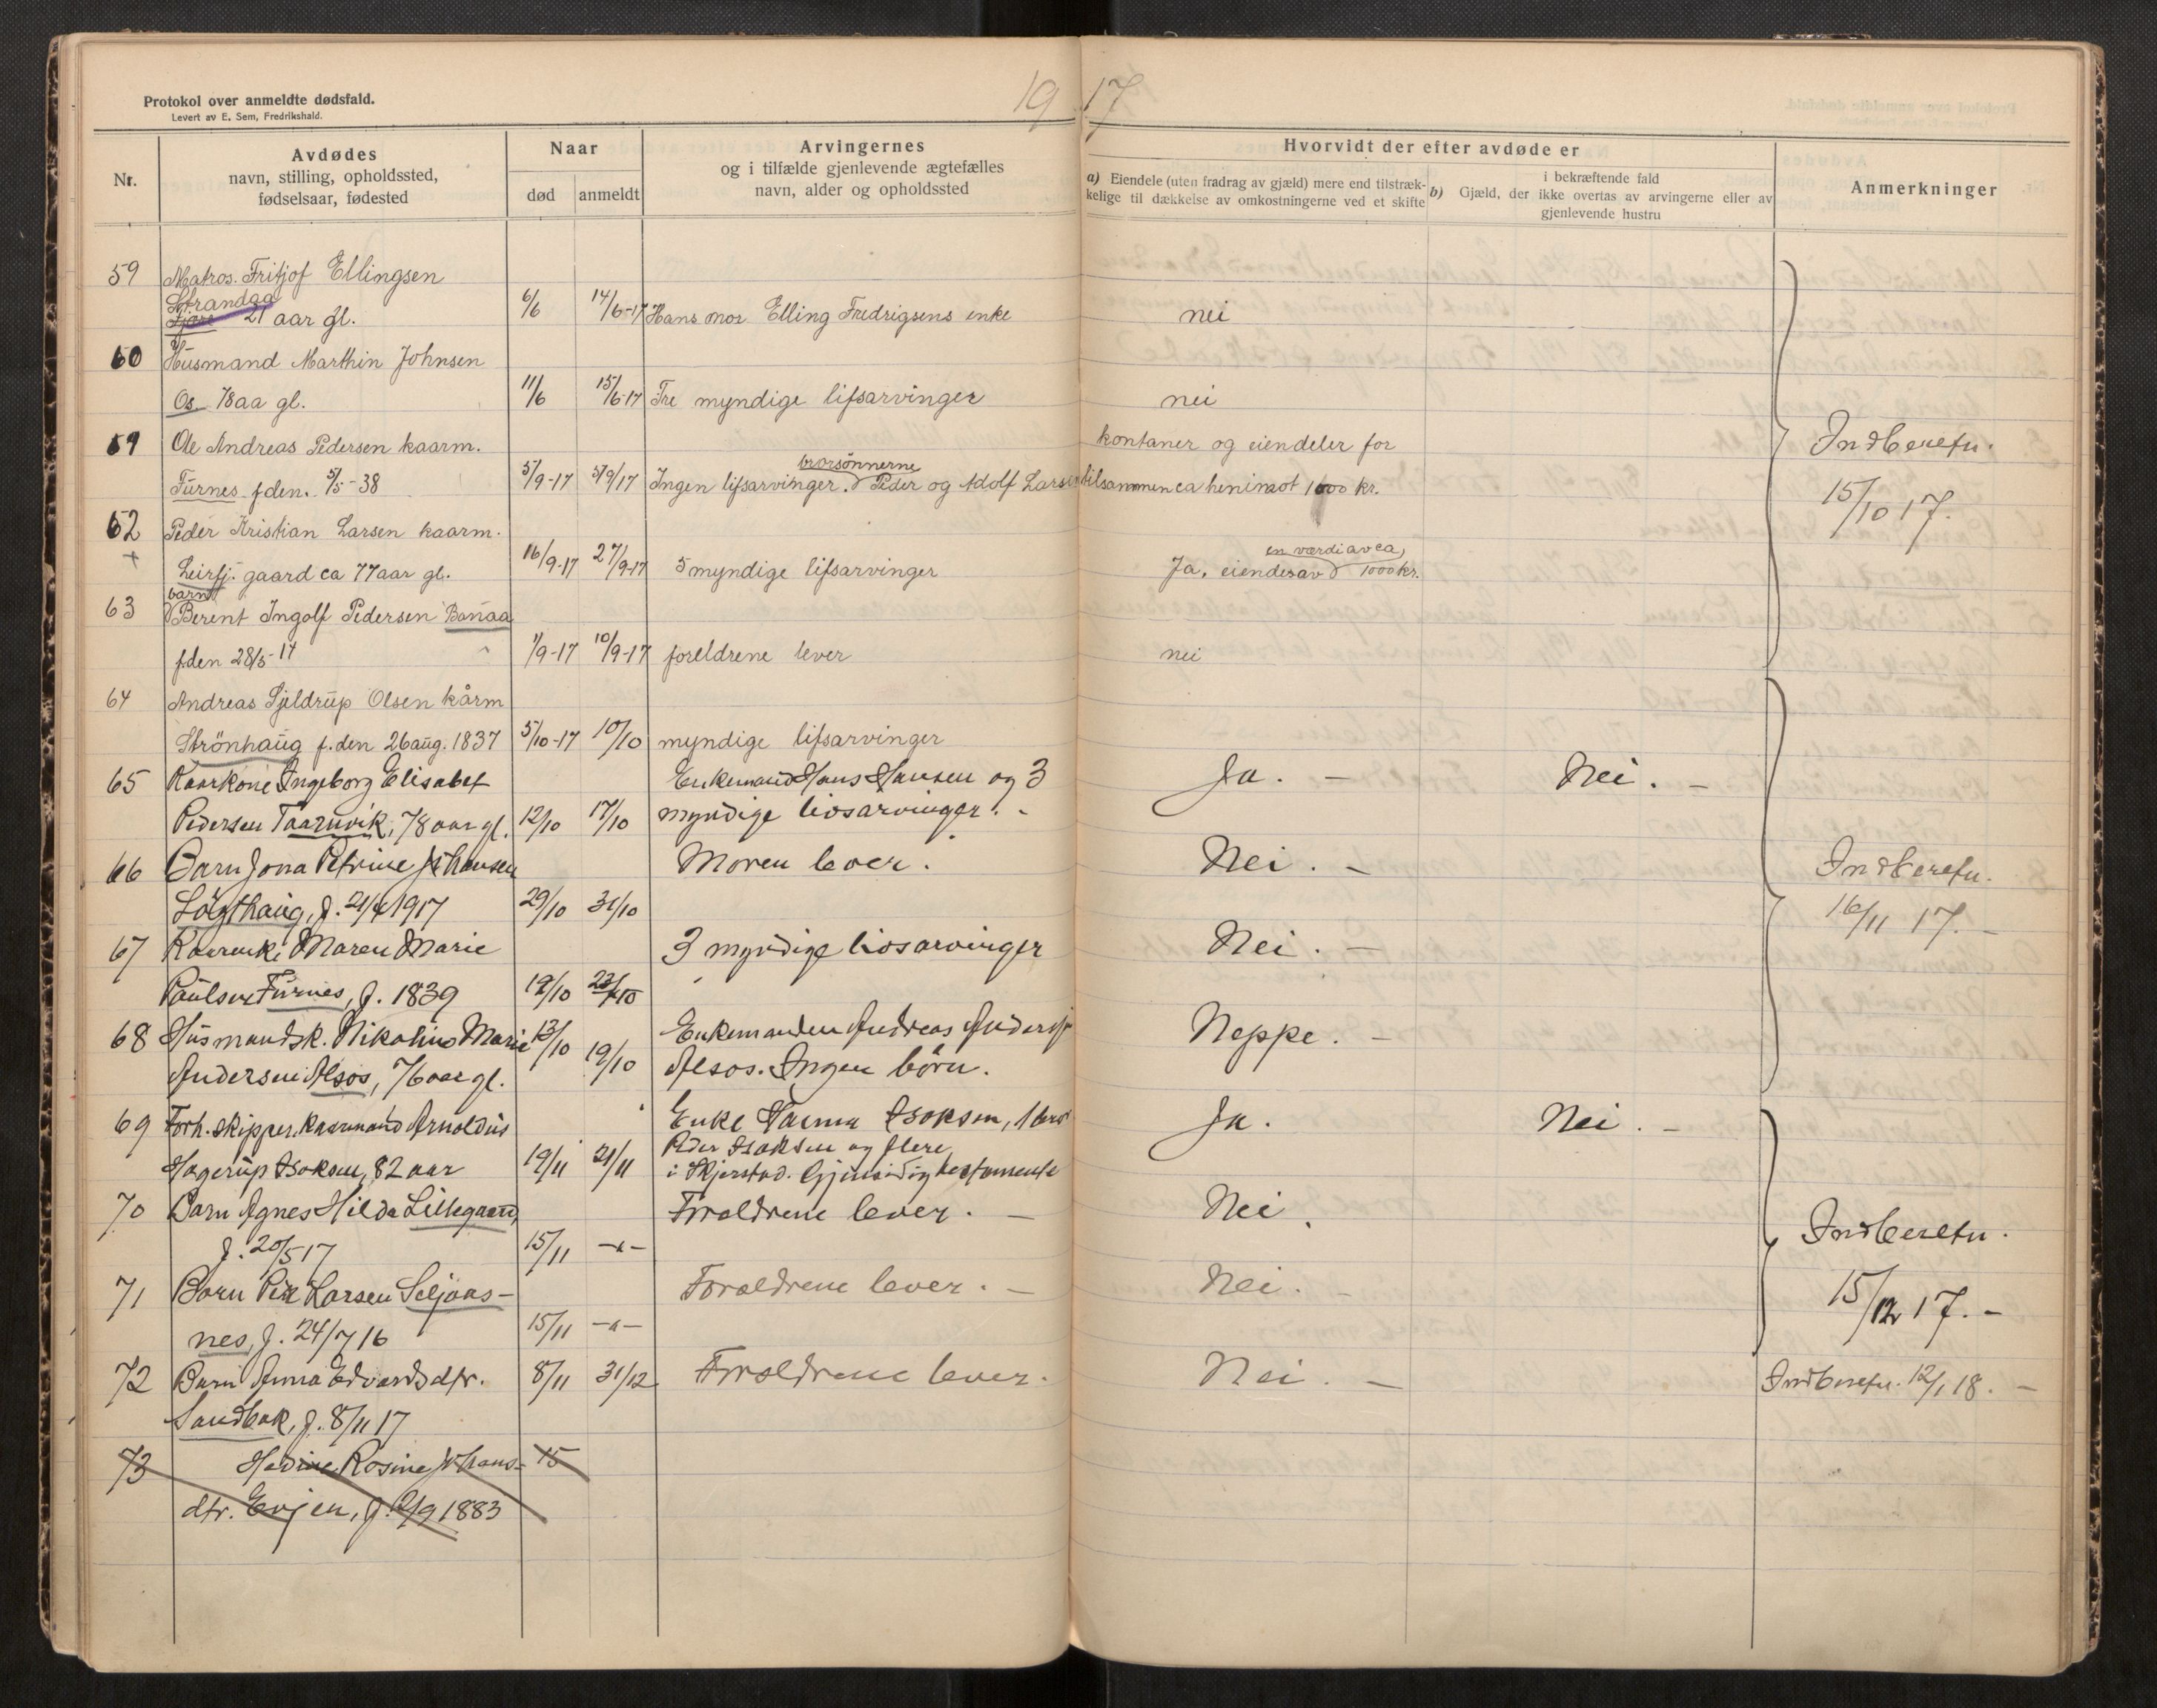 Protokol over anmeldte dødsfald.
Levert av E. Sem, Fredrikshald.
19 17
Nr.
Avdødes
navn, stilling, opholdssted,
fødselsaar, fødested
Naar
død
anmeldt
Arvingernes
og i tilfælde gjenlevende ægtefælles
navn, alder og opholdssted
Hvorvidt der efter avdøde er
a) Eiendele (uten fradrag av gjæld) mere end tilstræk-
kelige til dækkelse av omkostningerne ved et skifte
b) i bekræftende fald
Gjæld, der ikke overtas av arvingerne eller av
gjenlevende hustru
Anmerkninger
59 Matros. Fritjof Ellingsen
Strandaa
21 aar gl. 6/6 14/6-17 Hans mor Elling Fredrigsens enke nei
60 Husmand Marthin Johnsen
Os. 78 aa gl. 11/6 15/6-17 Tre myndige lifsarvinger nei
61 Ole Andreas Pedersen kaarm. kontaner og eiendeler for
brorsönnerne
Furnes f den. 5/5-38 5/9-17 5/9/17 Ingen lifsarvinger. Peder og Adolf Larsen tilsammen ca henimot 1600 kr.
Indberetn.
15/10 17.
62 Peder Kristian Larsen kaarm.
+ en værdi av ca,
Leirfj. gaard ca 77 aar gl. 16/9-17 27/9-17 5 myndige lifsarvinger Ja, eiender av 1000 kr.
barn
63 Berent Ingolf Pedersen Bonaa
f den 28/5-14 1/9-17 10/9-17 foreldrene lever nei
64 Andreas Sjeldrup Olsen kårm
Strönhaug f. den 26 aug. 1837 5/10-17 10/10 myndige lifsarvinger
65 Kaarkone Ingeborg Elisabet Enkemand Hans Hansen og 3 Ja. - Nei. -
Pedersen Taarnvik, 78 aar gl. 12/10 17/10 myndige livsarvinger. -
66 Barn Jona Petrine Johansen Moren lever. Nei. -
Lögthaug, f. 21/4 1917 29/10 31/10
Indberetn.
16/11 17. -
67 Kaarenk. Maren Marie 3 myndige livsarvinger Nei. -
Paulsen Furnes, f. 1839 19/10 23/10
68 Husmandsk. Nikoline Marie 13/10 Enkemanden Andreas Anders Neppe. -
Andersen Alsos, 76 aar gl. 19/10 Alsos. Ingen börn.
69 Forh. skipper, kaarmand Arnoldus Enke Hanna Isaksen, 1 bror Ja. Nei. -
Peder Isaksen og flere
Hagerup Isaksen, 82 aar 19/11 21/11 i Skjerstad. Gjensidig testamente
70 Barn Agnes Hilda Lillegaard, Foreldrene lever. - Nei.
f. 20/5 17 15/11 -"-
Indberetn.
15/12 17. -
71 Barn Peder Larsen Seljaas- Foreldrene lever. - Nei. -
nes, f. 24/7 16 15/11 -"-
72 Barn Anna Edvardsdtr. 8/11 31/12 Foreldrene lever. Nei. - Indberetn. 12/1 18. -
Sandbak, f. 8/11 17
73 Hedine Rosine Johans- 15
dtr. Evjen, f. 2/9 1883